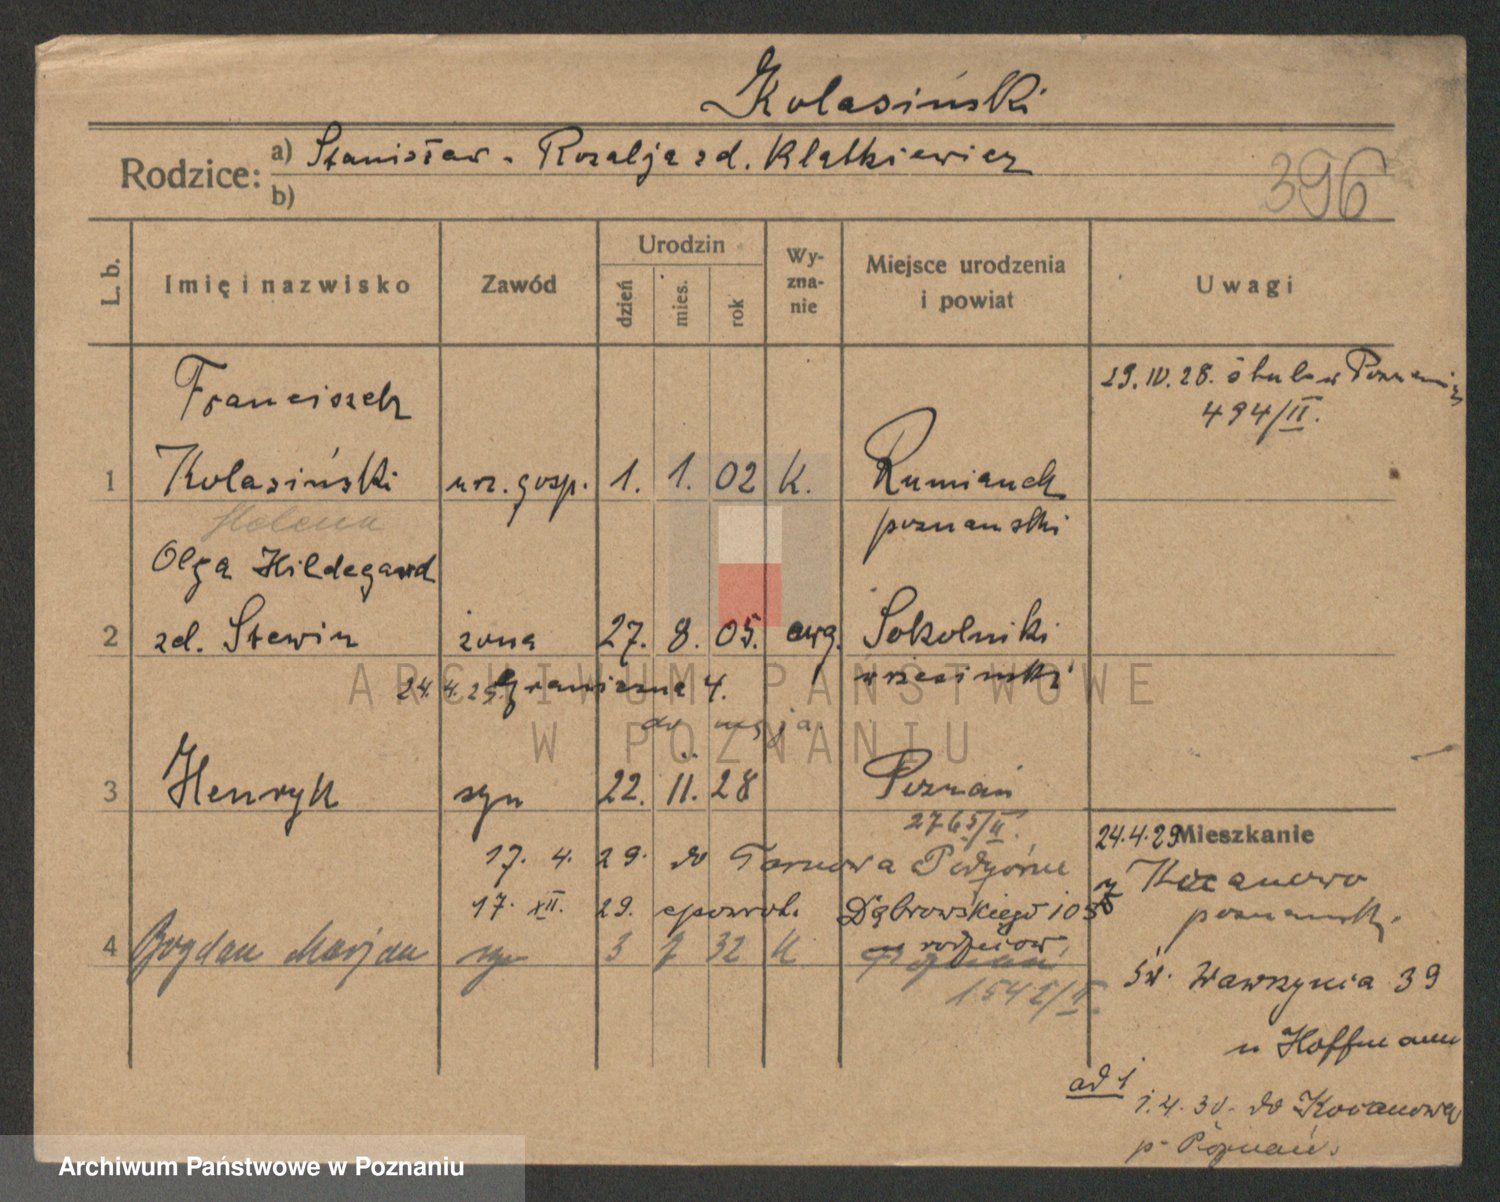 Kolasiński
Rodzice: a) Stanisław - Rozalja zd. Klatkiewicz
b)
396
L. b. Imię i nazwisko Zawód Urodzin dzień mies. rok Wyznanie Miejsce urodzenia i powiat Uwagi
29. IV. 28. ślub w Poznaniu
494/II.
Franciszek
1 Kolasiński urz. gosp. 1. 1. 02 K. Rumianek
poznański
Helena
Olga Hildegard
2 zd. Stewin żona 27. 8. 05. ewg. Sokolniki
wrzesiński
24. 4. 25. Graniczna 4.
do
3 Henryk syn 22. 11. 28 Poznań
2765/II.
17. 4. 29. do Tarnowa Podgórne
17. XII. 29. spowrot. Dąbrowskiego 105
rodziców
4 Bogdan Marjan syn 3 7 32 K Poznań
1542/II.
Mieszkanie
24.4.29
z Kocanowo
poznańsk.
Św. Wawrzyńca 39
u Hoffmann
ad 1
1. 4. 30. do Kocanowa
p. Poznań.
ARCHIWUM PAŃSTWOWE
W POZNANIU
Archiwum Państwowe w Poznaniu